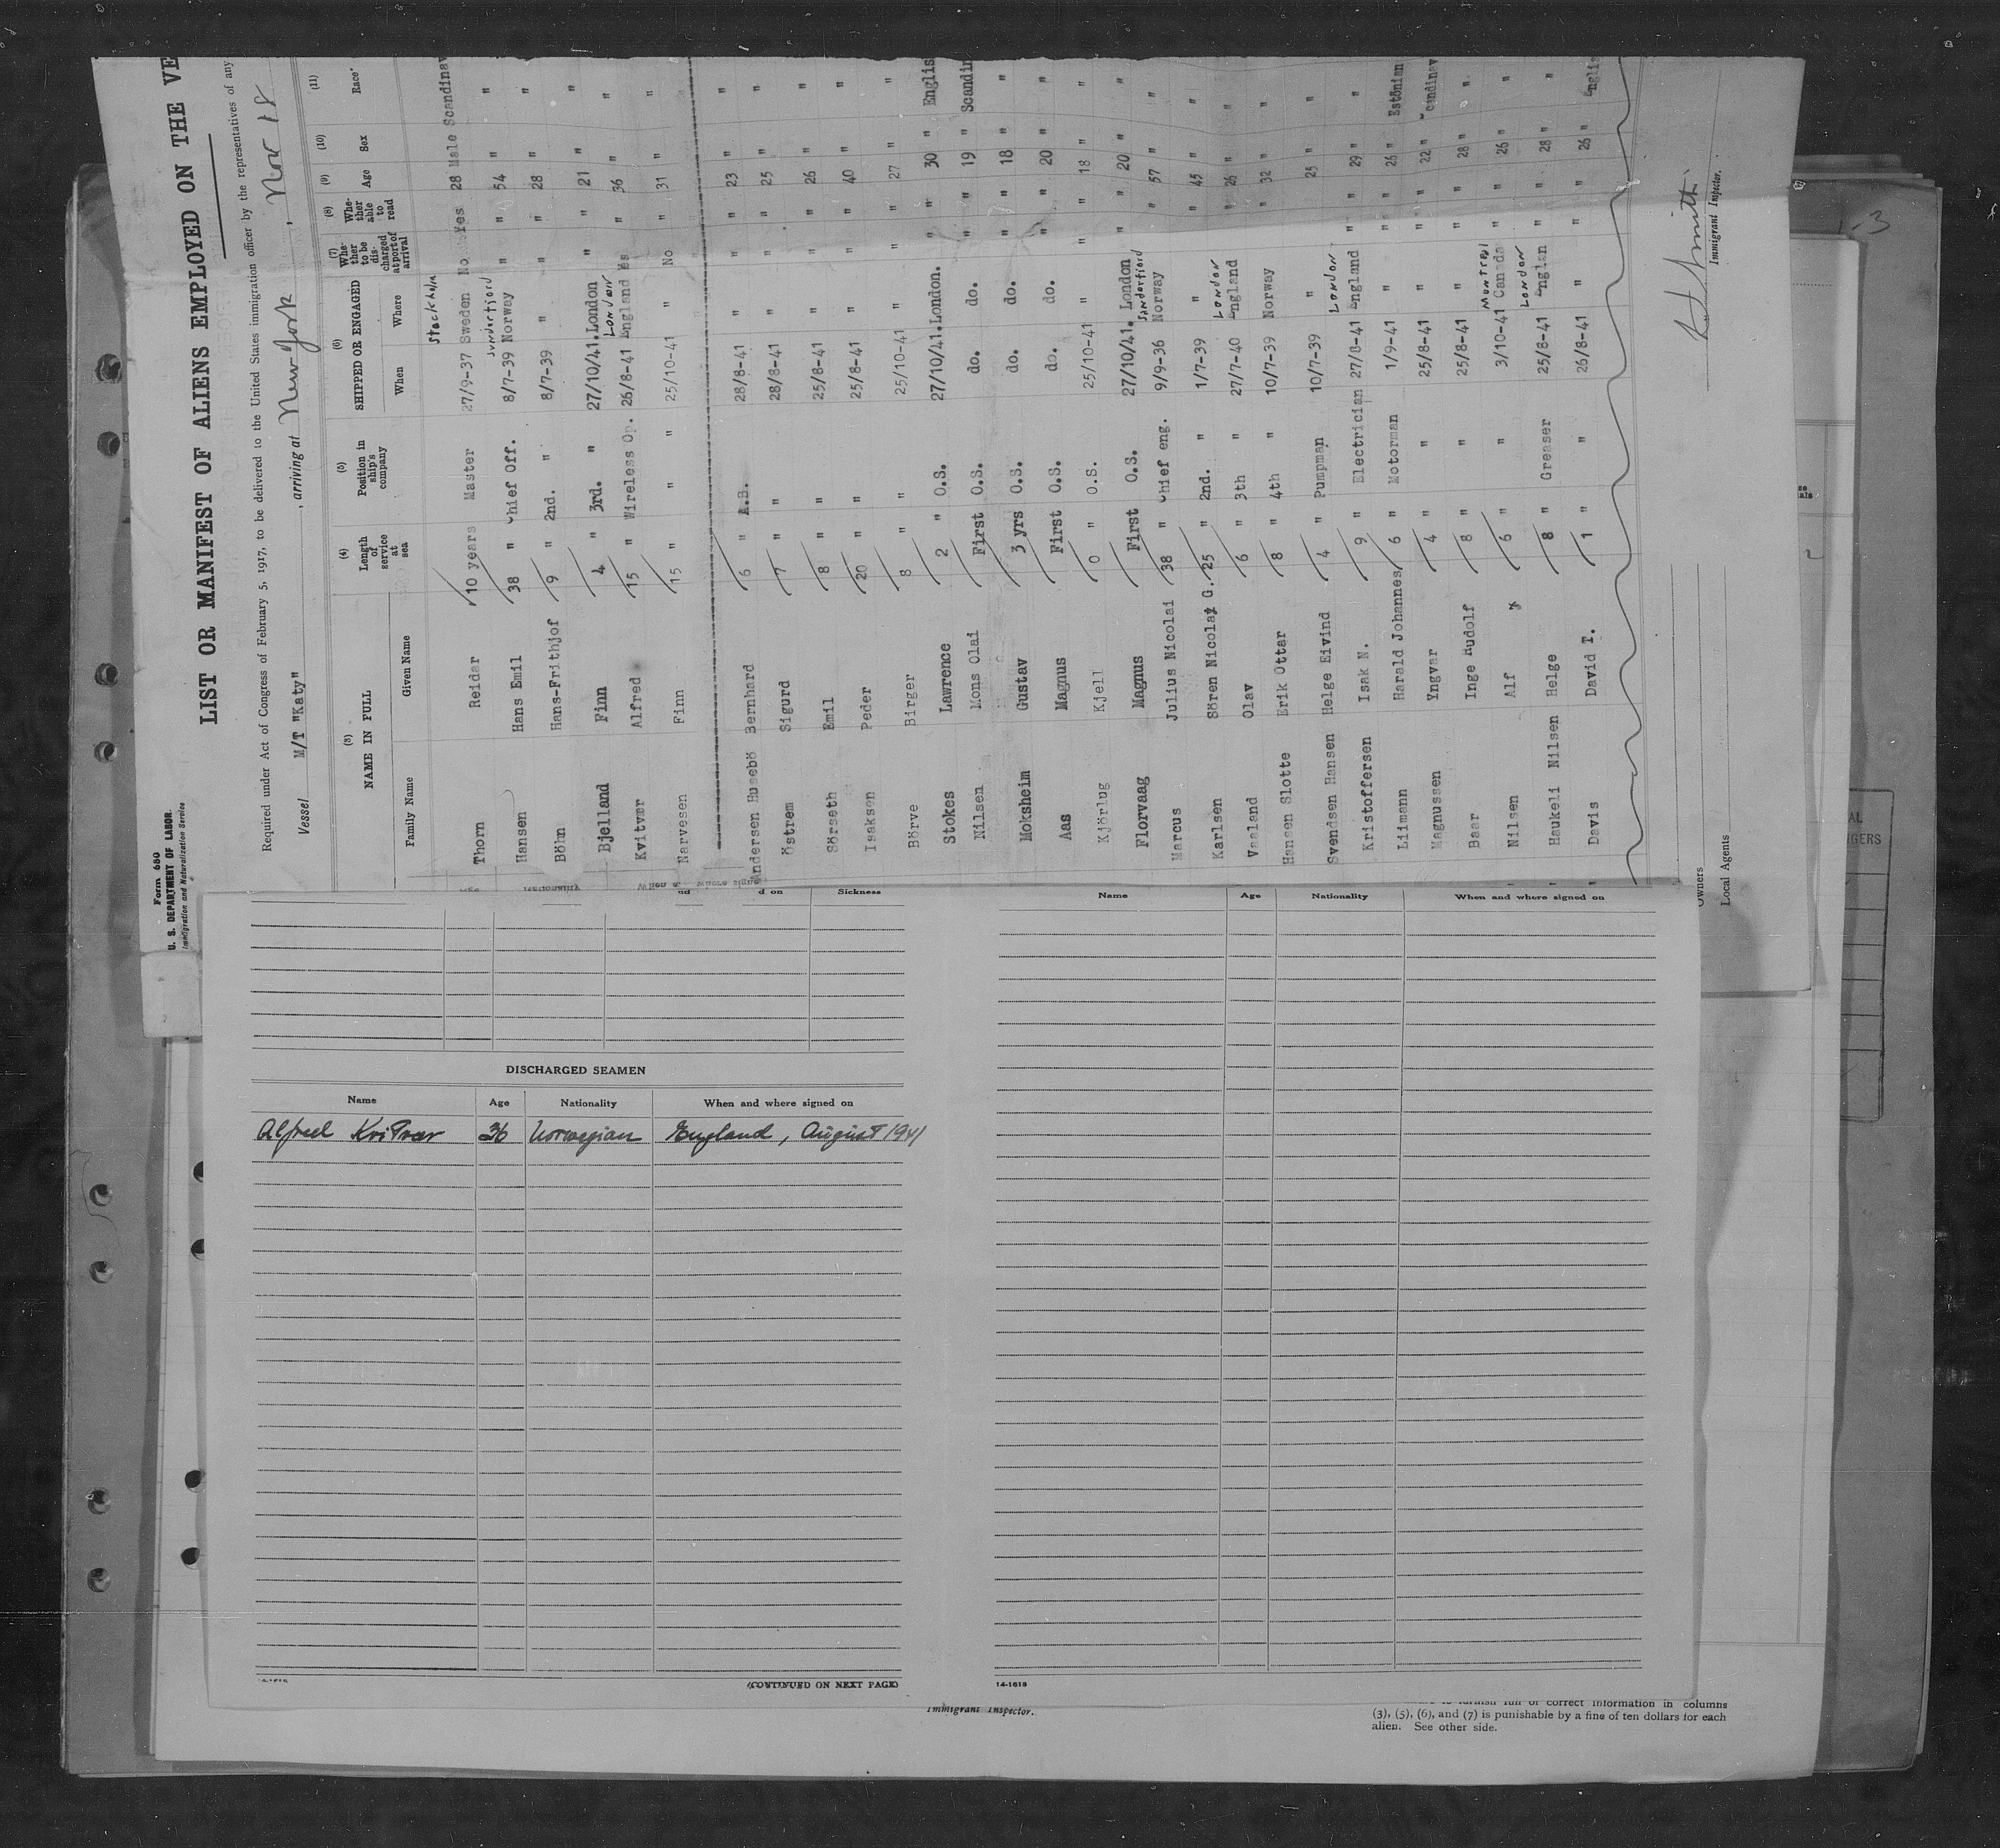 Form 680
U. S. DEPARTMENT OF LABOR
Immigration and Naturalization Service
LIST OR MANIFEST OF ALIENS EMPLOYED ON THE VE
Required under Act of Congress of February 5, 1917, to be delivered to the United States immigration officer by the representatives of any
Vessel M/T "Katy" , arriving at New York , Nov 18
(3) (4) (5) (6) (7) (8) (9) (10) (11)
NAME IN FULL Length of service at sea Position in ship's company SHIPPED OR ENGAGED Whether to be discharged at port of arrival Whether able to read Age Sex Race
Family Name Given Name When Where
Stockholm
Thorn Reidar 10 years Master 27/9-37 Sweden No Yes 28 Male Scandinav
Sandefjord
Hansen Hans Emil 38 " Chief Off. 8/7-39 Norway " " 54 " "
Böhm Hans-Frithjof 9 " 2nd. " 8/7-39 " " " 28 " "
Bjelland Finn 4 " 3rd. " 27/10/41. London " " 21 " "
London
Kvitvær Alfred 15 " Wireless Op. 26/8-41 England " 36 " "
Narvesen Finn 15 " " 25/10-41 " No " 31 " "
Andersen Husebö Bernhard 6 " A.B. 28/8-41 " " " 23 " "
Östrem Sigurd 7 " " 28/8-41 " " " 25 " "
Sörseth Emil 8 " " 25/8-41 " " " 26 " "
Isaksen Peder 20 " " 25/8-41 " " " 40 " "
Börve Birger 8 " " 25/10-41 " " " 27 " "
Stokes Lawrence 2 " O.S. 27/10/41. London. " " 30 " Englis
Nilsen Mons Olai First O.S. do. do. " " 19 " Scandin
Moksheim Gustav 3 yrs O.S. do. do. " " 18 " "
Aas Magnus First O.S. do. do. " " 20 " "
Kjörlug Kjell 0 " O.S. 25/10-41 " " " 18 " "
Florvaag Magnus First O.S. 27/10/41. London " " 20 " "
Sandefjord
Marcus Julius Nicolai 38 " Chief eng. 9/9-36 Norway " 57 " "
Karlsen Sören Nicolai G. 25 " 2nd. " 1/7-39 " " " 45 " "
London
Vaaland Olav 6 " 3th " 27/7-40 England " " 26 " "
Hansen Slotte Erik Ottar 8 " 4th " 10/7-39 Norway " " 32 " "
Svendsen Hansen Helge Eivind 4 " Pumpman 10/7-39 " " " 25 " "
London
Kristoffersen Isak N. 9 " Electrician 27/8-41 England " " 29 " "
Liimann Harald Johannes 6 " Motorman 1/9-41 " " " 26 " Estonian
Magnussen Yngvar 4 " " 25/8-41 " " " 22 " Scandinav
Baar Inge Rudolf 8 " " 25/8-41 " " " 28 " "
Montreal
Nilsen Alf 6 " " 3/10-41 Canada " " 26 " "
London
Haukeli Nilsen Helge 8 " Greaser 25/8-41 Englan " " 28 " "
Davis David T. 1 " " 26/8-41 " " " 26 " Englis
Immigrant Inspector.
Owners
Local Agents
d on Sickness
Name Age Nationality When and where signed on
DISCHARGED SEAMEN
Name Age Nationality When and where signed on
Alfred Kvitvær 36 Norwegian England, August 1941
(CONTINUED ON NEXT PAGE)
14-1618
Immigrant Inspector.
correct information in columns
(3), (5), (6), and (7) is punishable by a fine of ten dollars for each
alien. See other side.